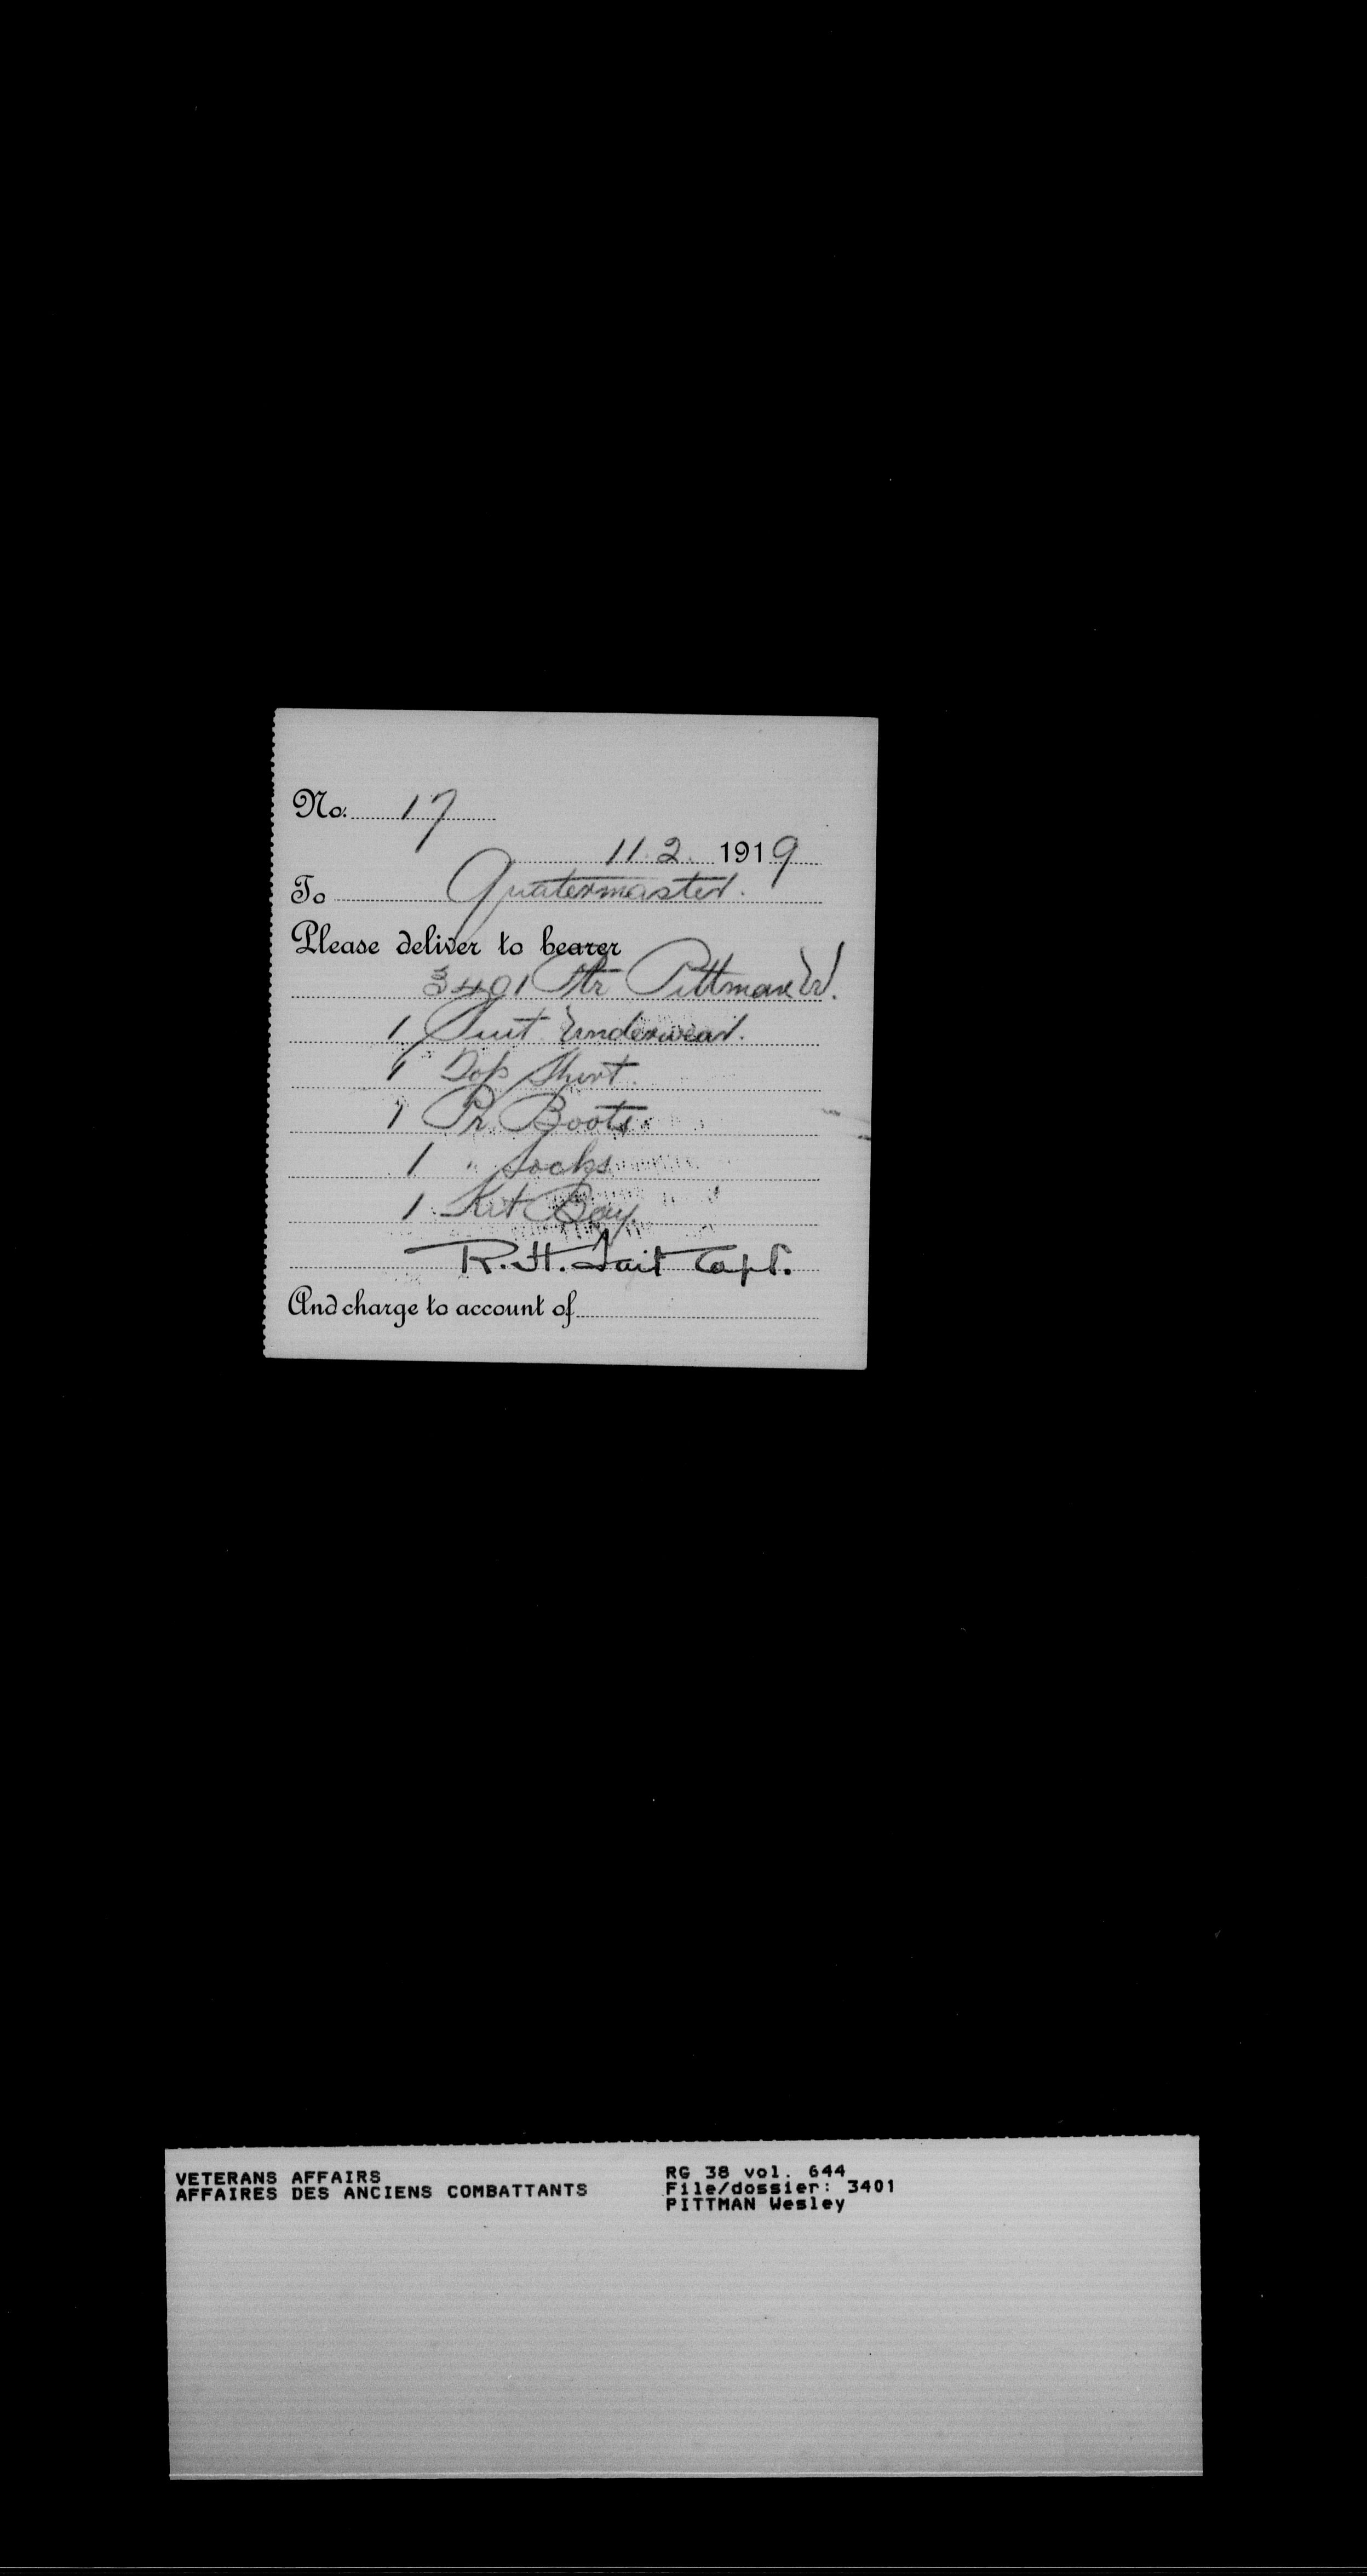 No. 17
11.2. 1919
To Quatermaster.
Please deliver to bearer
3401 Pte Pittman W.
1 Suit Underwear.
1 Top Shirt.
1 Pr. Boots.
1 " Socks
1 Kit Bag.
R.H. Tait Capt.
And charge to account of
VETERANS AFFAIRS
AFFAIRES DES ANCIENS COMBATTANTS
RG 38 vol. 644
File/dossier: 3401
PITTMAN Wesley